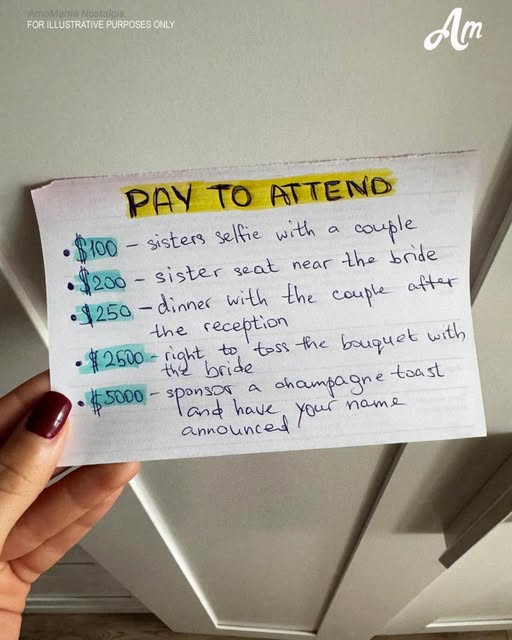 AmoMama Nostalgia
FOR ILLUSTRATIVE PURPOSES ONLY
Am
PAY TO ATTEND
• $100 – sisters selfie with a couple
• $200 – sister seat near the bride
• $250 – dinner with the couple after
the reception
• $2500 – right to toss the bouquet with
the bride
• $5000 – sponsor a champagne toast
and have your name
announced